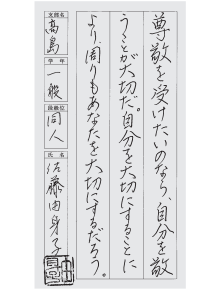 尊敬を受けたいのなら、自分を敬
うことが大切だ。自分を大切にすることに
より、周りもあなたを大切にするだろう。
支部名
高島
学年
一般
段級位
同人
氏名
佐藤由身子